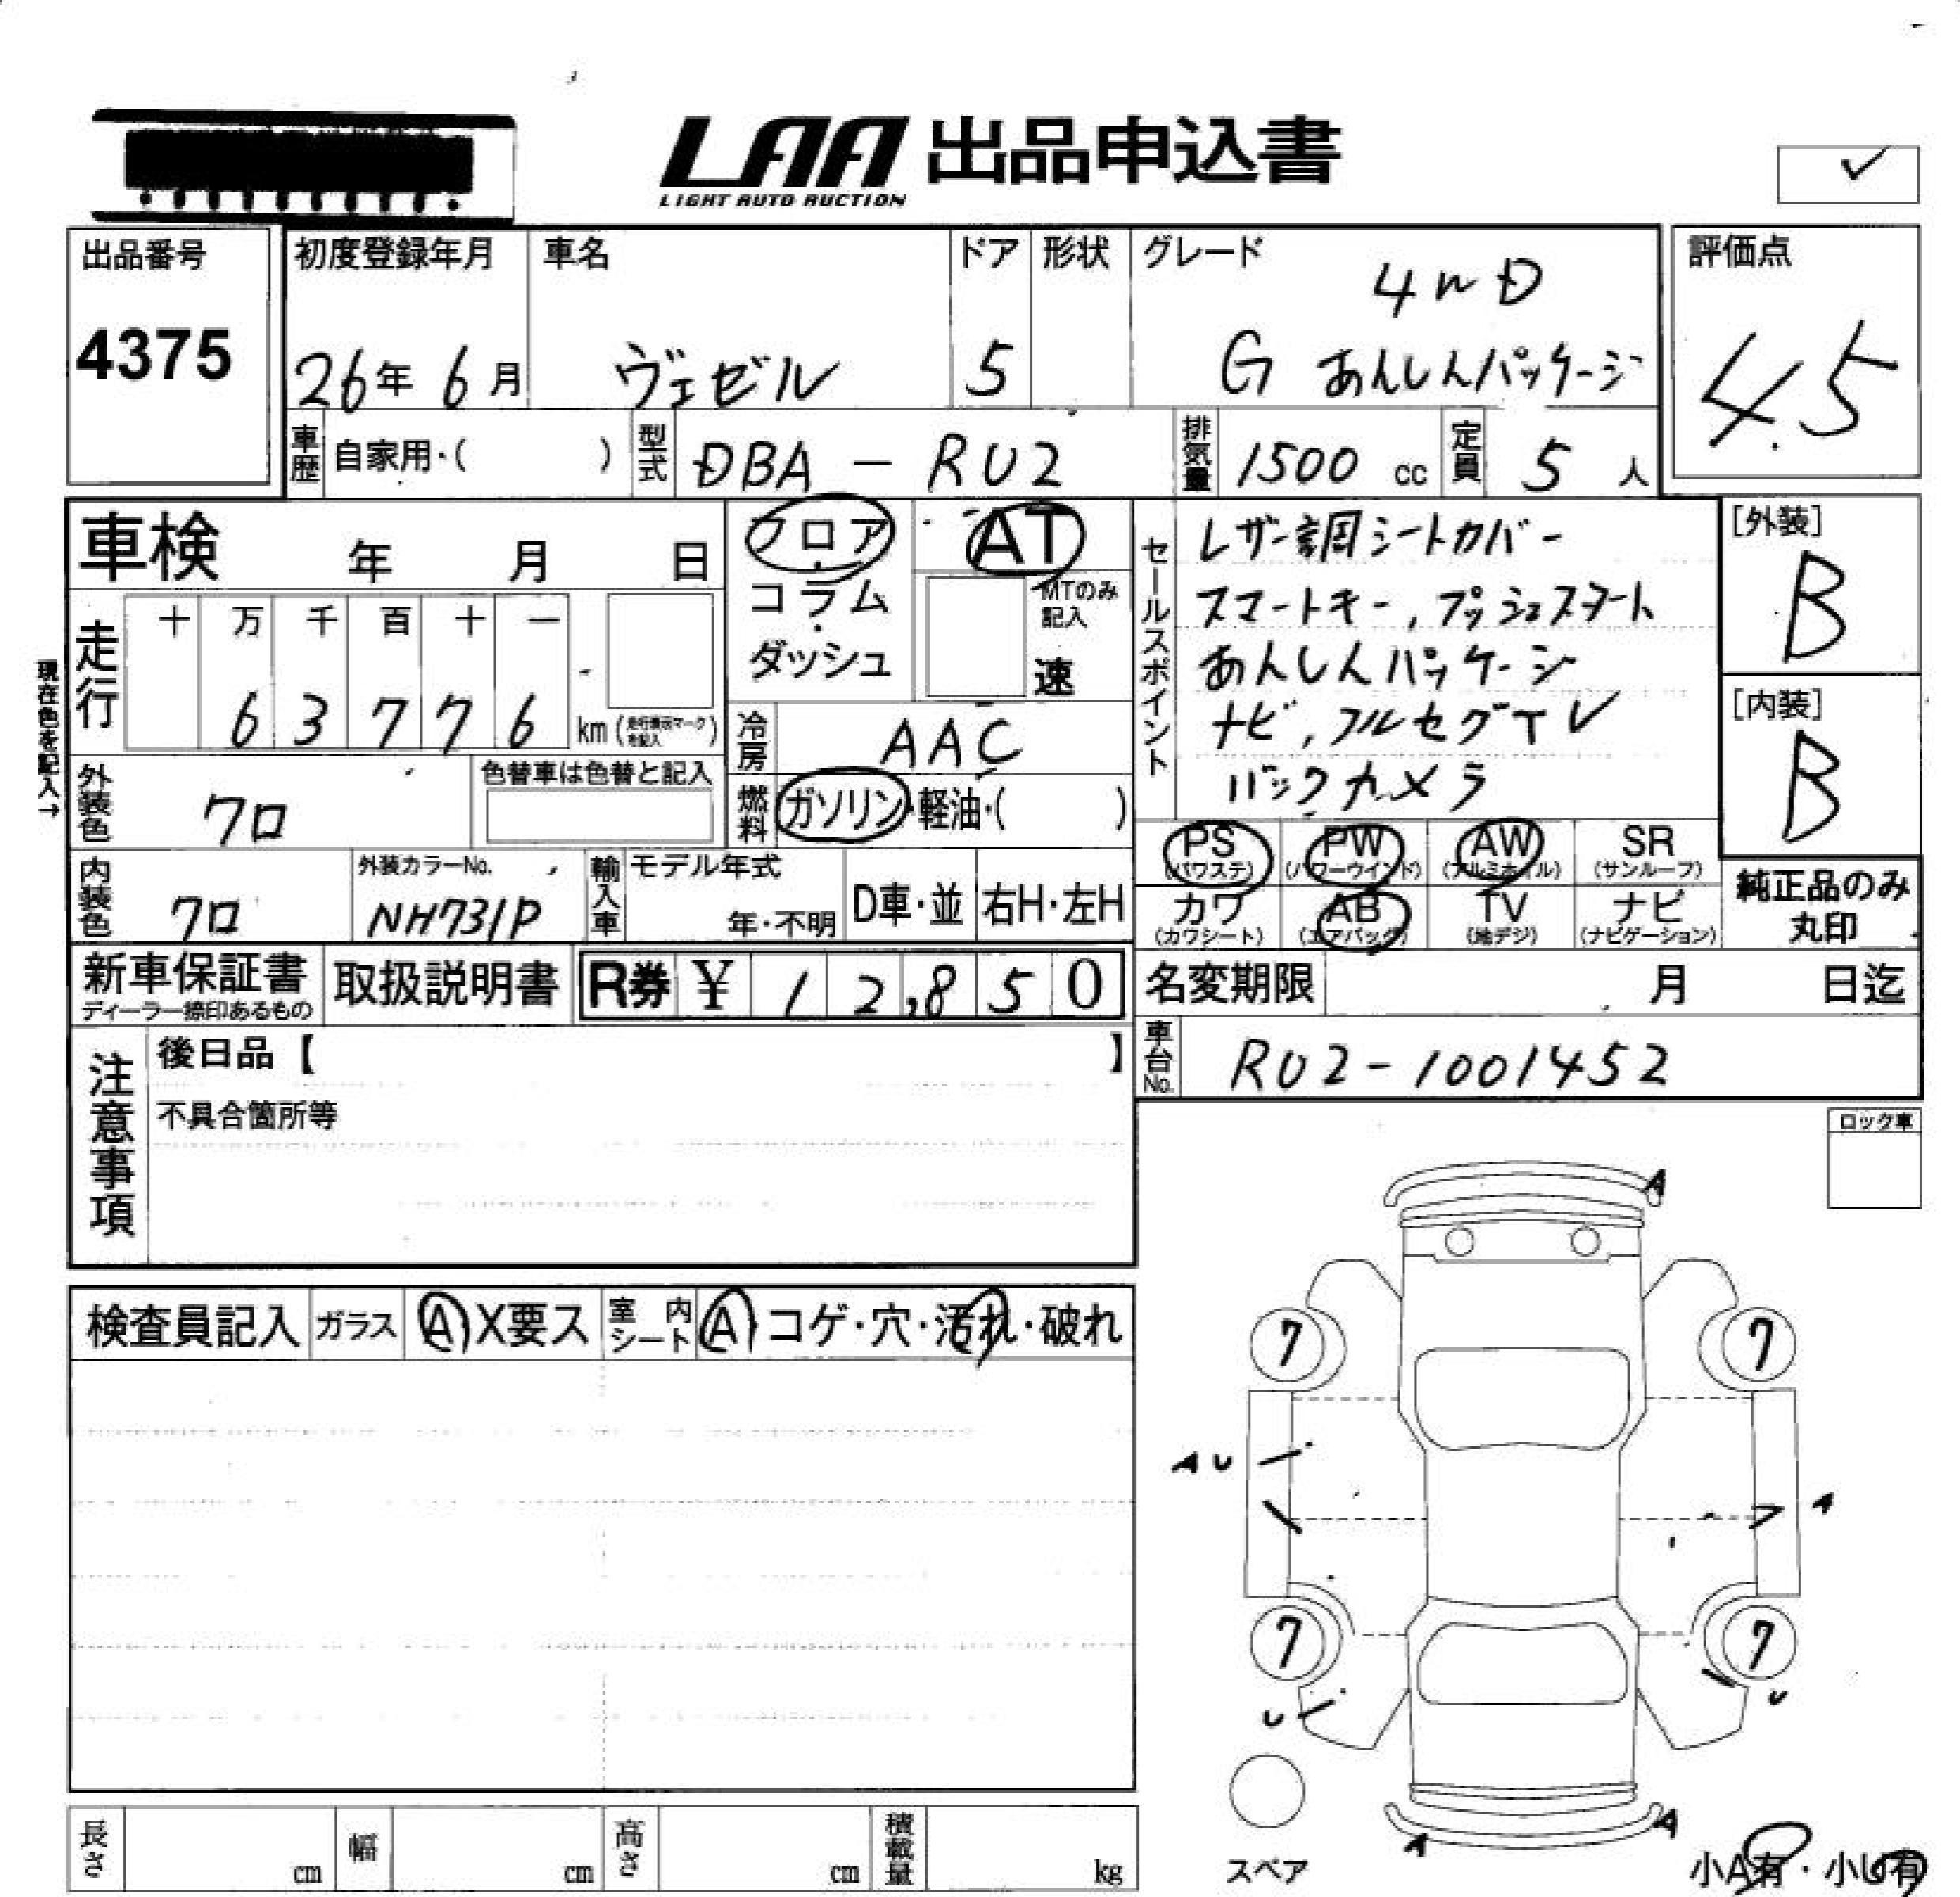 LAA 出品申込書
LIGHT AUTO AUCTION
出品番号
4375
初度登録年月
26年 6月
車名
ヴェゼル
ドア
5
形状
グレード
4WD
G あんしんパッケージ
評価点
4.5
車歴 自家用・( )
型式 DBA - RU2
排気量 1500 cc
定員 5 人
車検 年 月 日
フロア
・
コラム
・
ダッシュ
AT
MTのみ
記入
速
セールスポイント
レザー調シートカバー
スマートキー, プッシュスタート
あんしんパッケージ
ナビ, フルセグTV
バックカメラ
[外装]
B
[内装]
B
現在色を記入→
走行
十 万 千 百 十 一
6 3 7 7 6 km (走行表示マークを記入)
冷房 AAC
外装色 クロ
色替車は色替と記入
燃料 ガソリン・軽油・( )
内装色 クロ
外装カラーNo.
NH731P
輸入車
モデル年式
年・不明
D車・並
右H・左H
PS
(パワステ)
PW
(パワーウインド)
AW
(アルミホイル)
SR
(サンルーフ)
カワ
(カワシート)
AB
(エアバッグ)
TV
(地デジ)
ナビ
(ナビゲーション)
純正品のみ
丸印
新車保証書
ディーラー捺印あるもの
取扱説明書
R券 ¥ 1 2,8 5 0
名変期限 月 日迄
車台No. RU2-1001452
注意事項
後日品【 】
不具合箇所等
ロック車
検査員記入
ガラス A・X要ス
室内シート A・コゲ・穴・汚れ・破れ
A
7 7
A U
A
7 7
U
U
A
A
スペア
小A有・小U有
長さ cm
幅 cm
高さ cm
積載量 kg